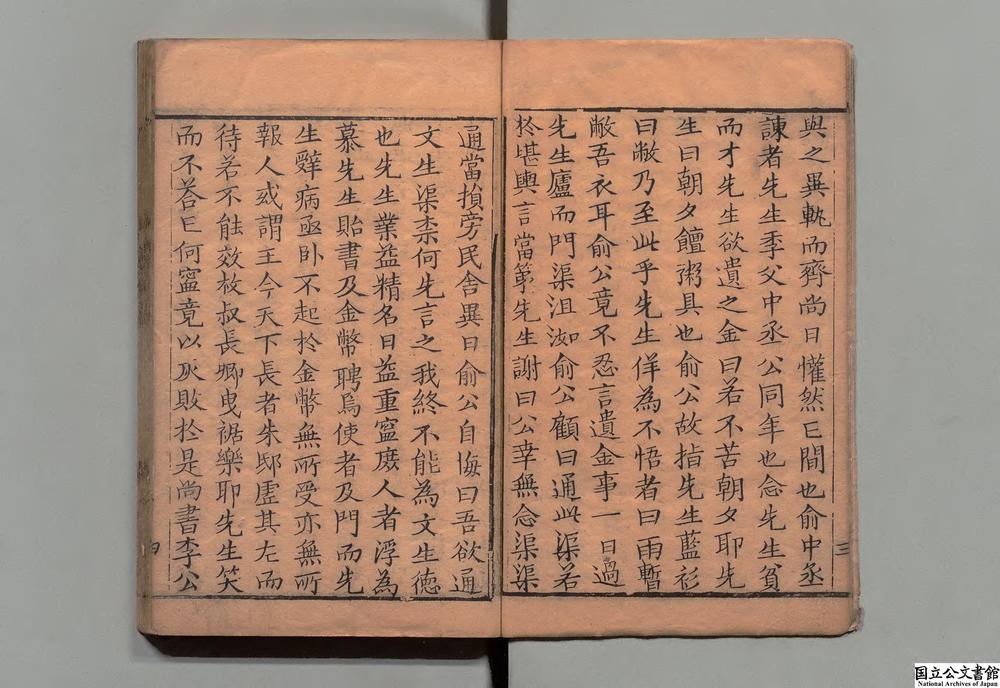 與之異軌而齊尚日懽然亡間也俞中丞
諫者先生季父中丞公同年也念先生貧
而才先生欲遺之金曰若不苦朝夕耶先
生曰朝夕饘粥具也俞公故指先生藍衫
曰敝乃至此乎先生佯為不悟者曰雨暫
敝吾衣耳俞公竟不忍言遺金事一日過
先生廬而門渠沮洳俞公顧曰通此渠若
於堪輿言當第先生謝曰公幸無念渠渠
通當損旁民舍異日俞公自悔曰吾欲通
文生渠柰何先言之我終不能為文生德
也先生業益精名日益重寧庶人者浮為
慕先生貽書及金幣聘焉使者及門而先
生辭病亟卧不起於金幣無所受亦無所
報人或謂王今天下長者朱邸虛其左而
待若不能效枚叔長卿曳裾樂耶先生笑
而不荅亡何寧竟以反敗於是尚書李公
三
四
国立公文書館
National Archives of Japan